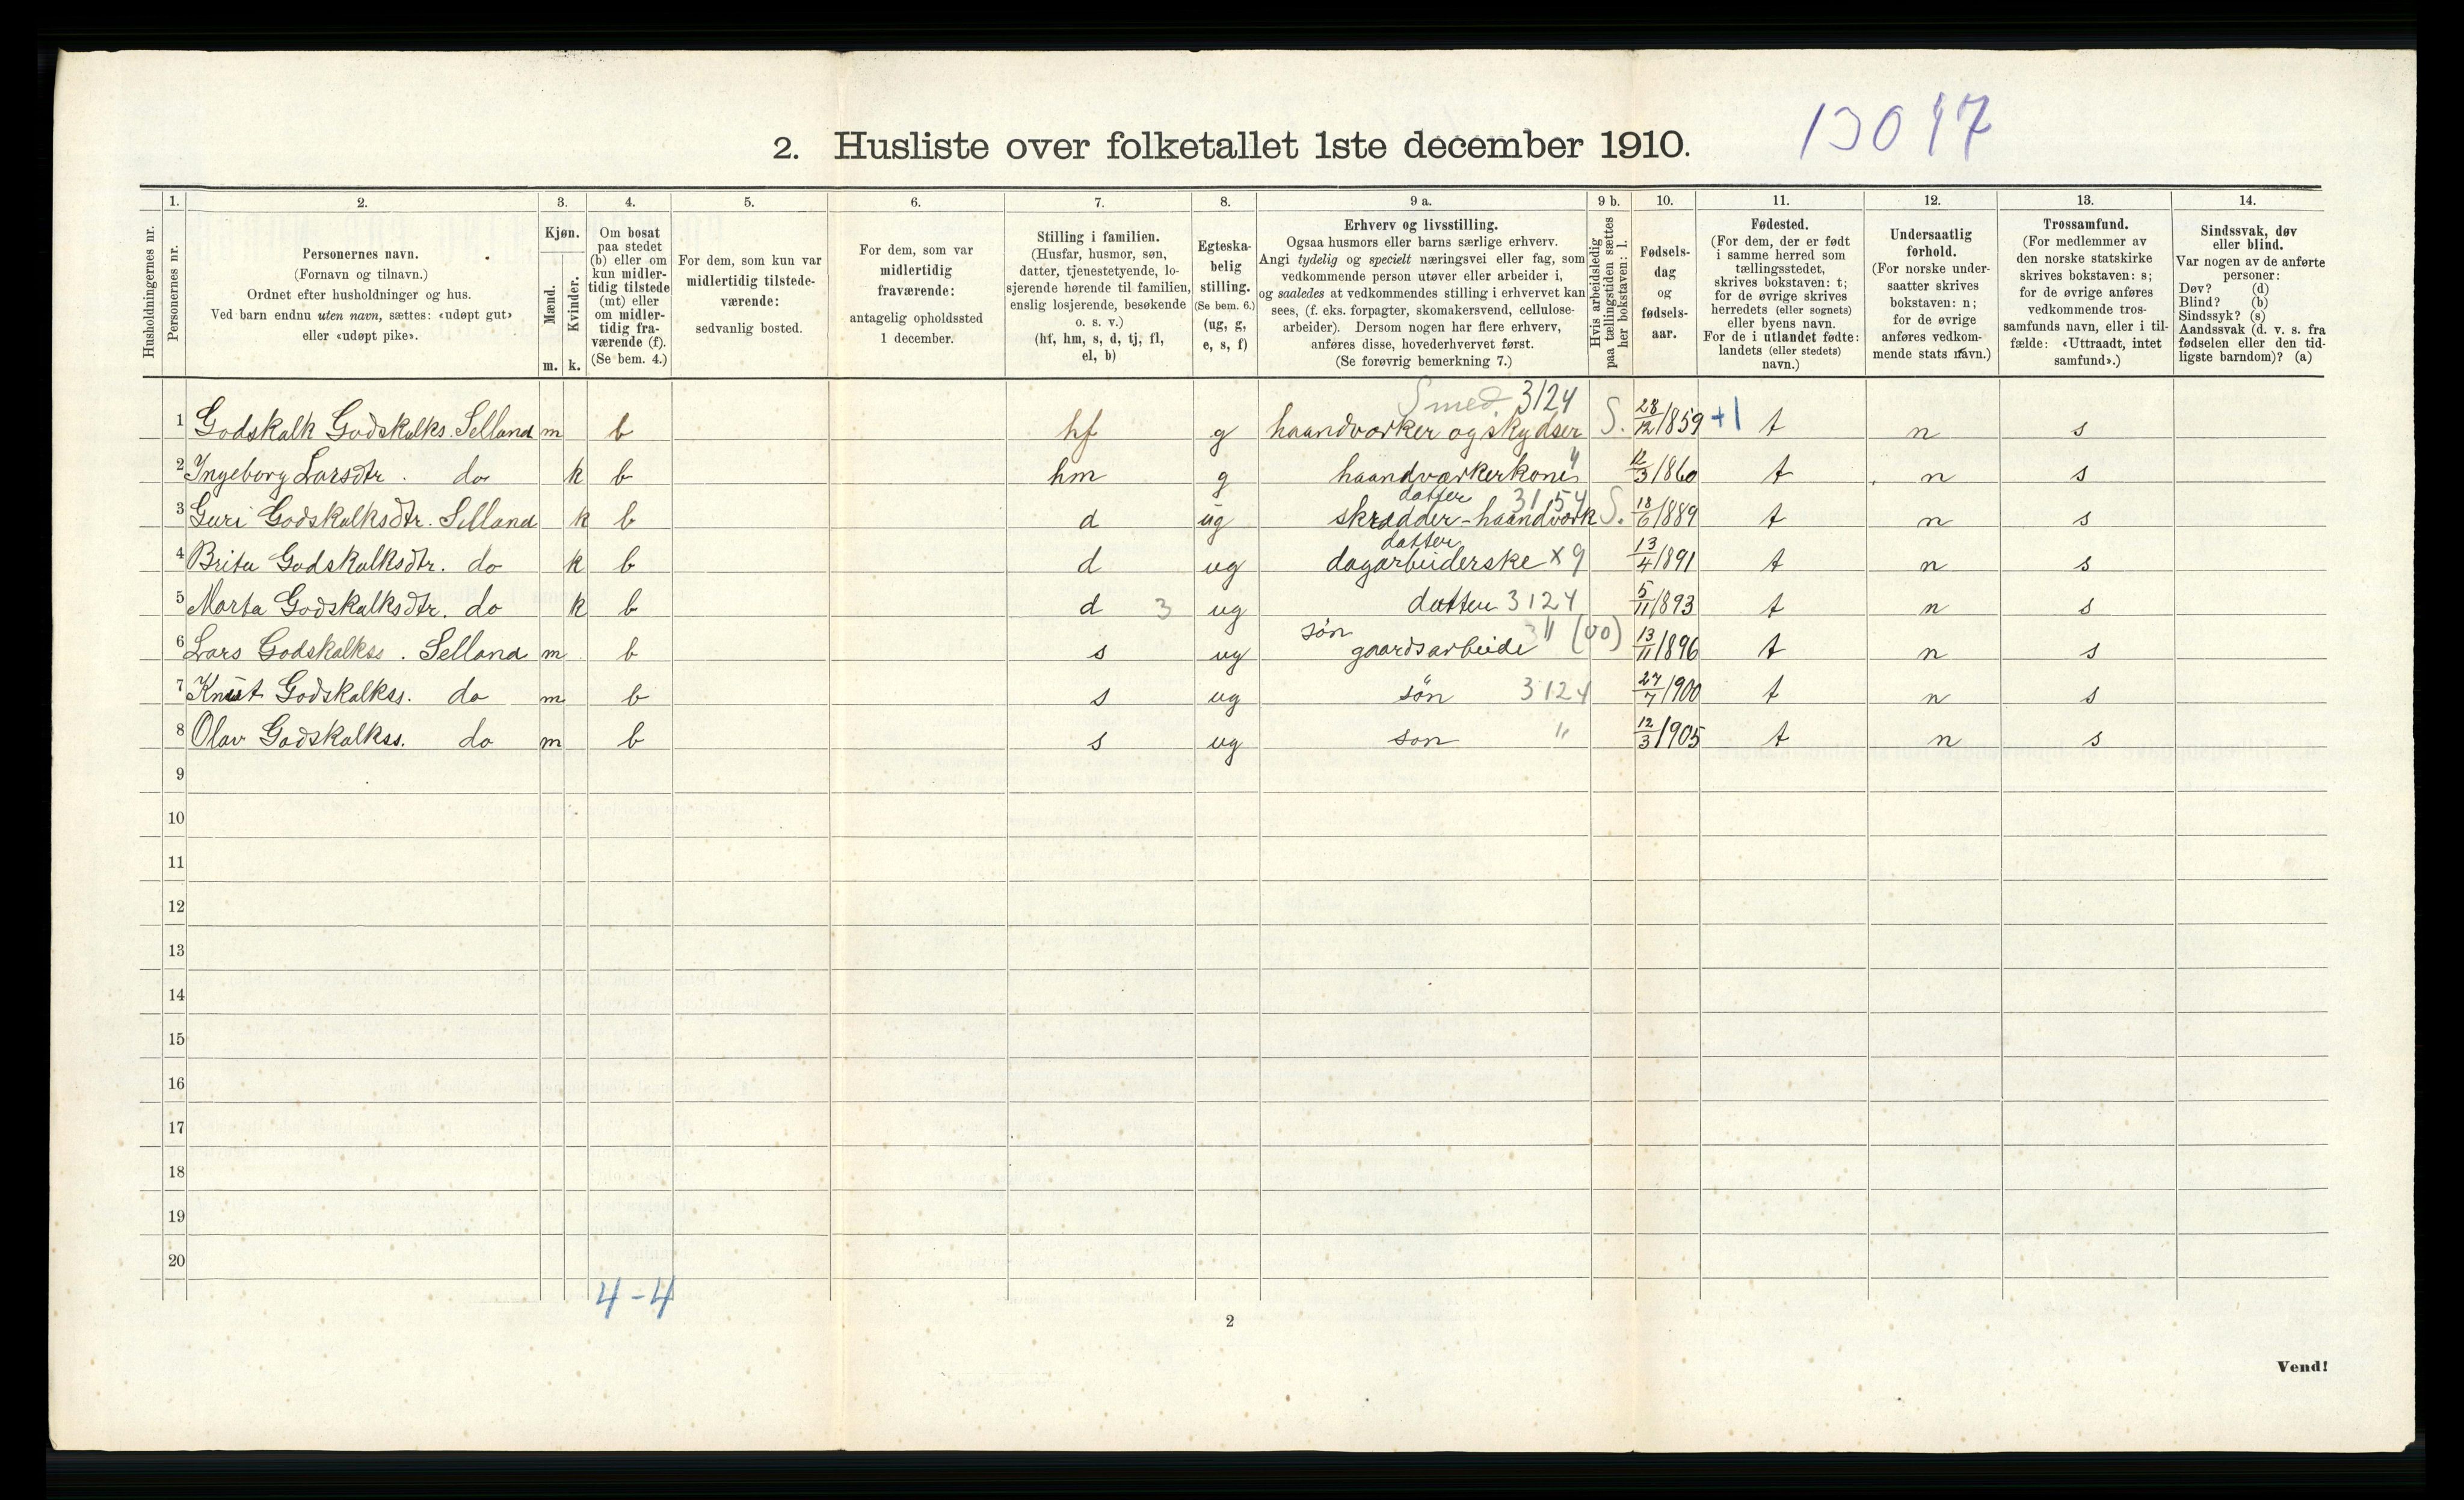 13017
2. Husliste over folketallet 1ste december 1910.
Husholdningernes nr.
1.
Personernes nr.
2.
Personernes navn.
(Fornavn og tilnavn.)
Ordnet efter husholdninger og hus.
Ved barn endnu uten navn, sættes: «udøpt gut»
eller «udøpt pike».
3.
Kjøn.
Mænd.
Kvinder.
m. k.
4.
Om bosat
paa stedet
(b) eller om
kun midler-
tidig tilstede
(mt) eller
om midler-
tidig fra-
værende (f).
(Se bem. 4.)
5.
For dem, som kun var
midlertidig tilstede-
værende:
sedvanlig bosted.
6.
For dem, som var
midlertidig
fraværende:
antagelig opholdssted
1 december.
7.
Stilling i familien.
(Husfar, husmor, søn,
datter, tjenestetyende, lo-
sjerende hørende til familien,
enslig losjerende, besøkende
o. s. v.)
(hf, hm, s, d, tj, fl,
el, b)
8.
Egteska-
belig
stilling.
(Se bem. 6.)
(ug, g,
e, s, f)
9 a.
Erhverv og livsstilling.
Ogsaa husmors eller barns særlige erhverv.
Angi tydelig og specielt næringsvei eller fag, som
vedkommende person utøver eller arbeider i,
og saaledes at vedkommendes stilling i erhvervet kan
sees, (f. eks. forpagter, skomakersvend, cellulose-
arbeider). Dersom nogen har flere erhverv,
anføres disse, hovederhvervet først.
(Se forøvrig bemerkning 7.)
9 b.
Hvis arbeidsledig
paa tællingstiden sættes
her bokstaven: l.
10.
Fødsels-
dag
og
fødsels-
aar.
11.
Fødested.
(For dem, der er født
i samme herred som
tællingsstedet,
skrives bokstaven: t;
for de øvrige skrives
herredets (eller sognets)
eller byens navn.
For de i utlandet fødte:
landets (eller stedets)
navn.)
12.
Undersaatlig
forhold.
(For norske under-
saatter skrives
bokstaven: n;
for de øvrige
anføres vedkom-
mende stats navn.)
13.
Trossamfund.
(For medlemmer av
den norske statskirke
skrives bokstaven: s;
for de øvrige anføres
vedkommende tros-
samfunds navn, eller i til-
fælde: «Uttraadt, intet
samfund».)
14.
Sindssvak, døv
eller blind.
Var nogen av de anførte
personer:
Døv? (d)
Blind? (b)
Sindssyk? (s)
Aandssvak (d. v. s. fra
fødselen eller den tid-
ligste barndom)? (a)
Smed. 3124
1 Godskalk Godskalks. Selland m b hf g haandværker og skydser S. 28/12 1859 +1 t n s
2 Ingeborg Larsdtr. do k b hm g haandværkerkone " 12/3 1860 t n s
datter 3154
3 Guri Godskalksdtr. Selland k b d ug skrædder-haandværk S. 18/6 1889 t n s
datter
4 Brita Godskalksdtr. do k b d ug dagarbeiderske x 9 13/4 1891 t n s
5 Marta Godskalksdtr. do k b d 3 ug datter 3124 5/11 1893 t n s
søn " (00)
6 Lars Godskalkss. Selland m b s ug gaardsarbeide 13/11 1896 t n s
7 Knut Godskalkss. do m b s ug søn 3124 27/7 1900 t n s
8 Olav Godskalkss. do m b s ug søn " 12/3 1905 t n s
9
10
11
12
13
14
15
16
17
18
19
20
4-4
2
Vend!